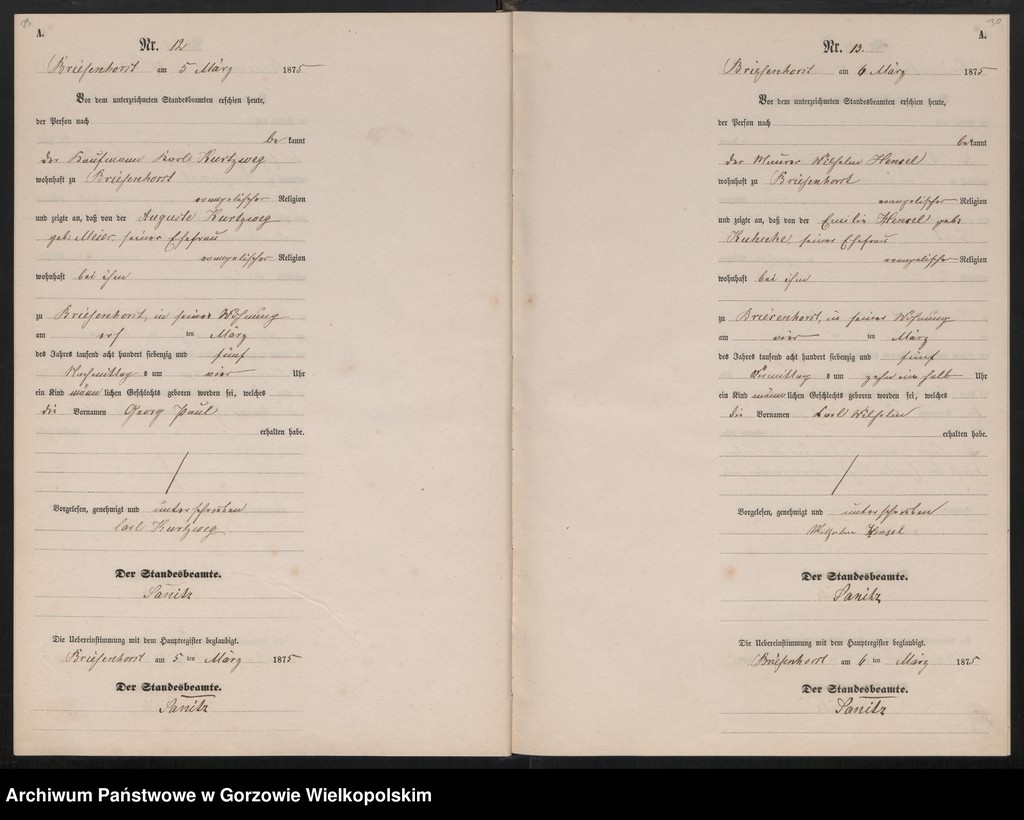 A.
Nr. 12
Briesenhorst am 5 März 1875
Vor dem unterzeichneten Standesbeamten erschien heute,
der Person nach
be kannt
der Kaufmann Karl Kurtzweg
wohnhaft zu Briesenhorst
evangelischer Religion
und zeigte an, daß von der Auguste Kurtzweg
geb. Meier, seiner Ehefrau
evangelischer Religion
wohnhaft bei ihm
zu Briesenhorst, in seiner Wohnung
am ten März
des Jahres tausend acht hundert siebenzig und fünf
Nachmittag s um vier Uhr
ein Kind männ lichen Geschlechts geboren worden sei, welches
die Vornamen Georg Paul
erhalten habe.
Vorgelesen, genehmigt und unterschrieben
Carl Kurtzweg
Der Standesbeamte.
Sanitz
Die Uebereinstimmung mit dem Hauptregister beglaubigt.
Briesenhorst am 5 ten März 1875
Der Standesbeamte.
Sanitz
30
A.
Nr. 13.
Briesenhorst am 6 März 1875
Vor dem unterzeichneten Standesbeamten erschien heute,
der Person nach
be kannt
der Maurer Wilhelm Hensel
wohnhaft zu Briesenhorst
evangelischer Religion
und zeigte an, daß von der Emilie Hensel geb.
seiner Ehefrau
evangelischer Religion
wohnhaft bei ihm
zu Briesenhorst, in seiner Wohnung
am vier ten März
des Jahres tausend acht hundert siebenzig und fünf
Vormittag s um zehn ein halb Uhr
ein Kind männ lichen Geschlechts geboren worden sei, welches
die Vornamen Carl Wilhelm
erhalten habe.
Vorgelesen, genehmigt und unterschrieben
Wilhelm Hensel
Der Standesbeamte.
Sanitz
Die Uebereinstimmung mit dem Hauptregister beglaubigt.
Briesenhorst am 6 ten März 1875
Der Standesbeamte.
Sanitz
Archiwum Państwowe w Gorzowie Wielkopolskim